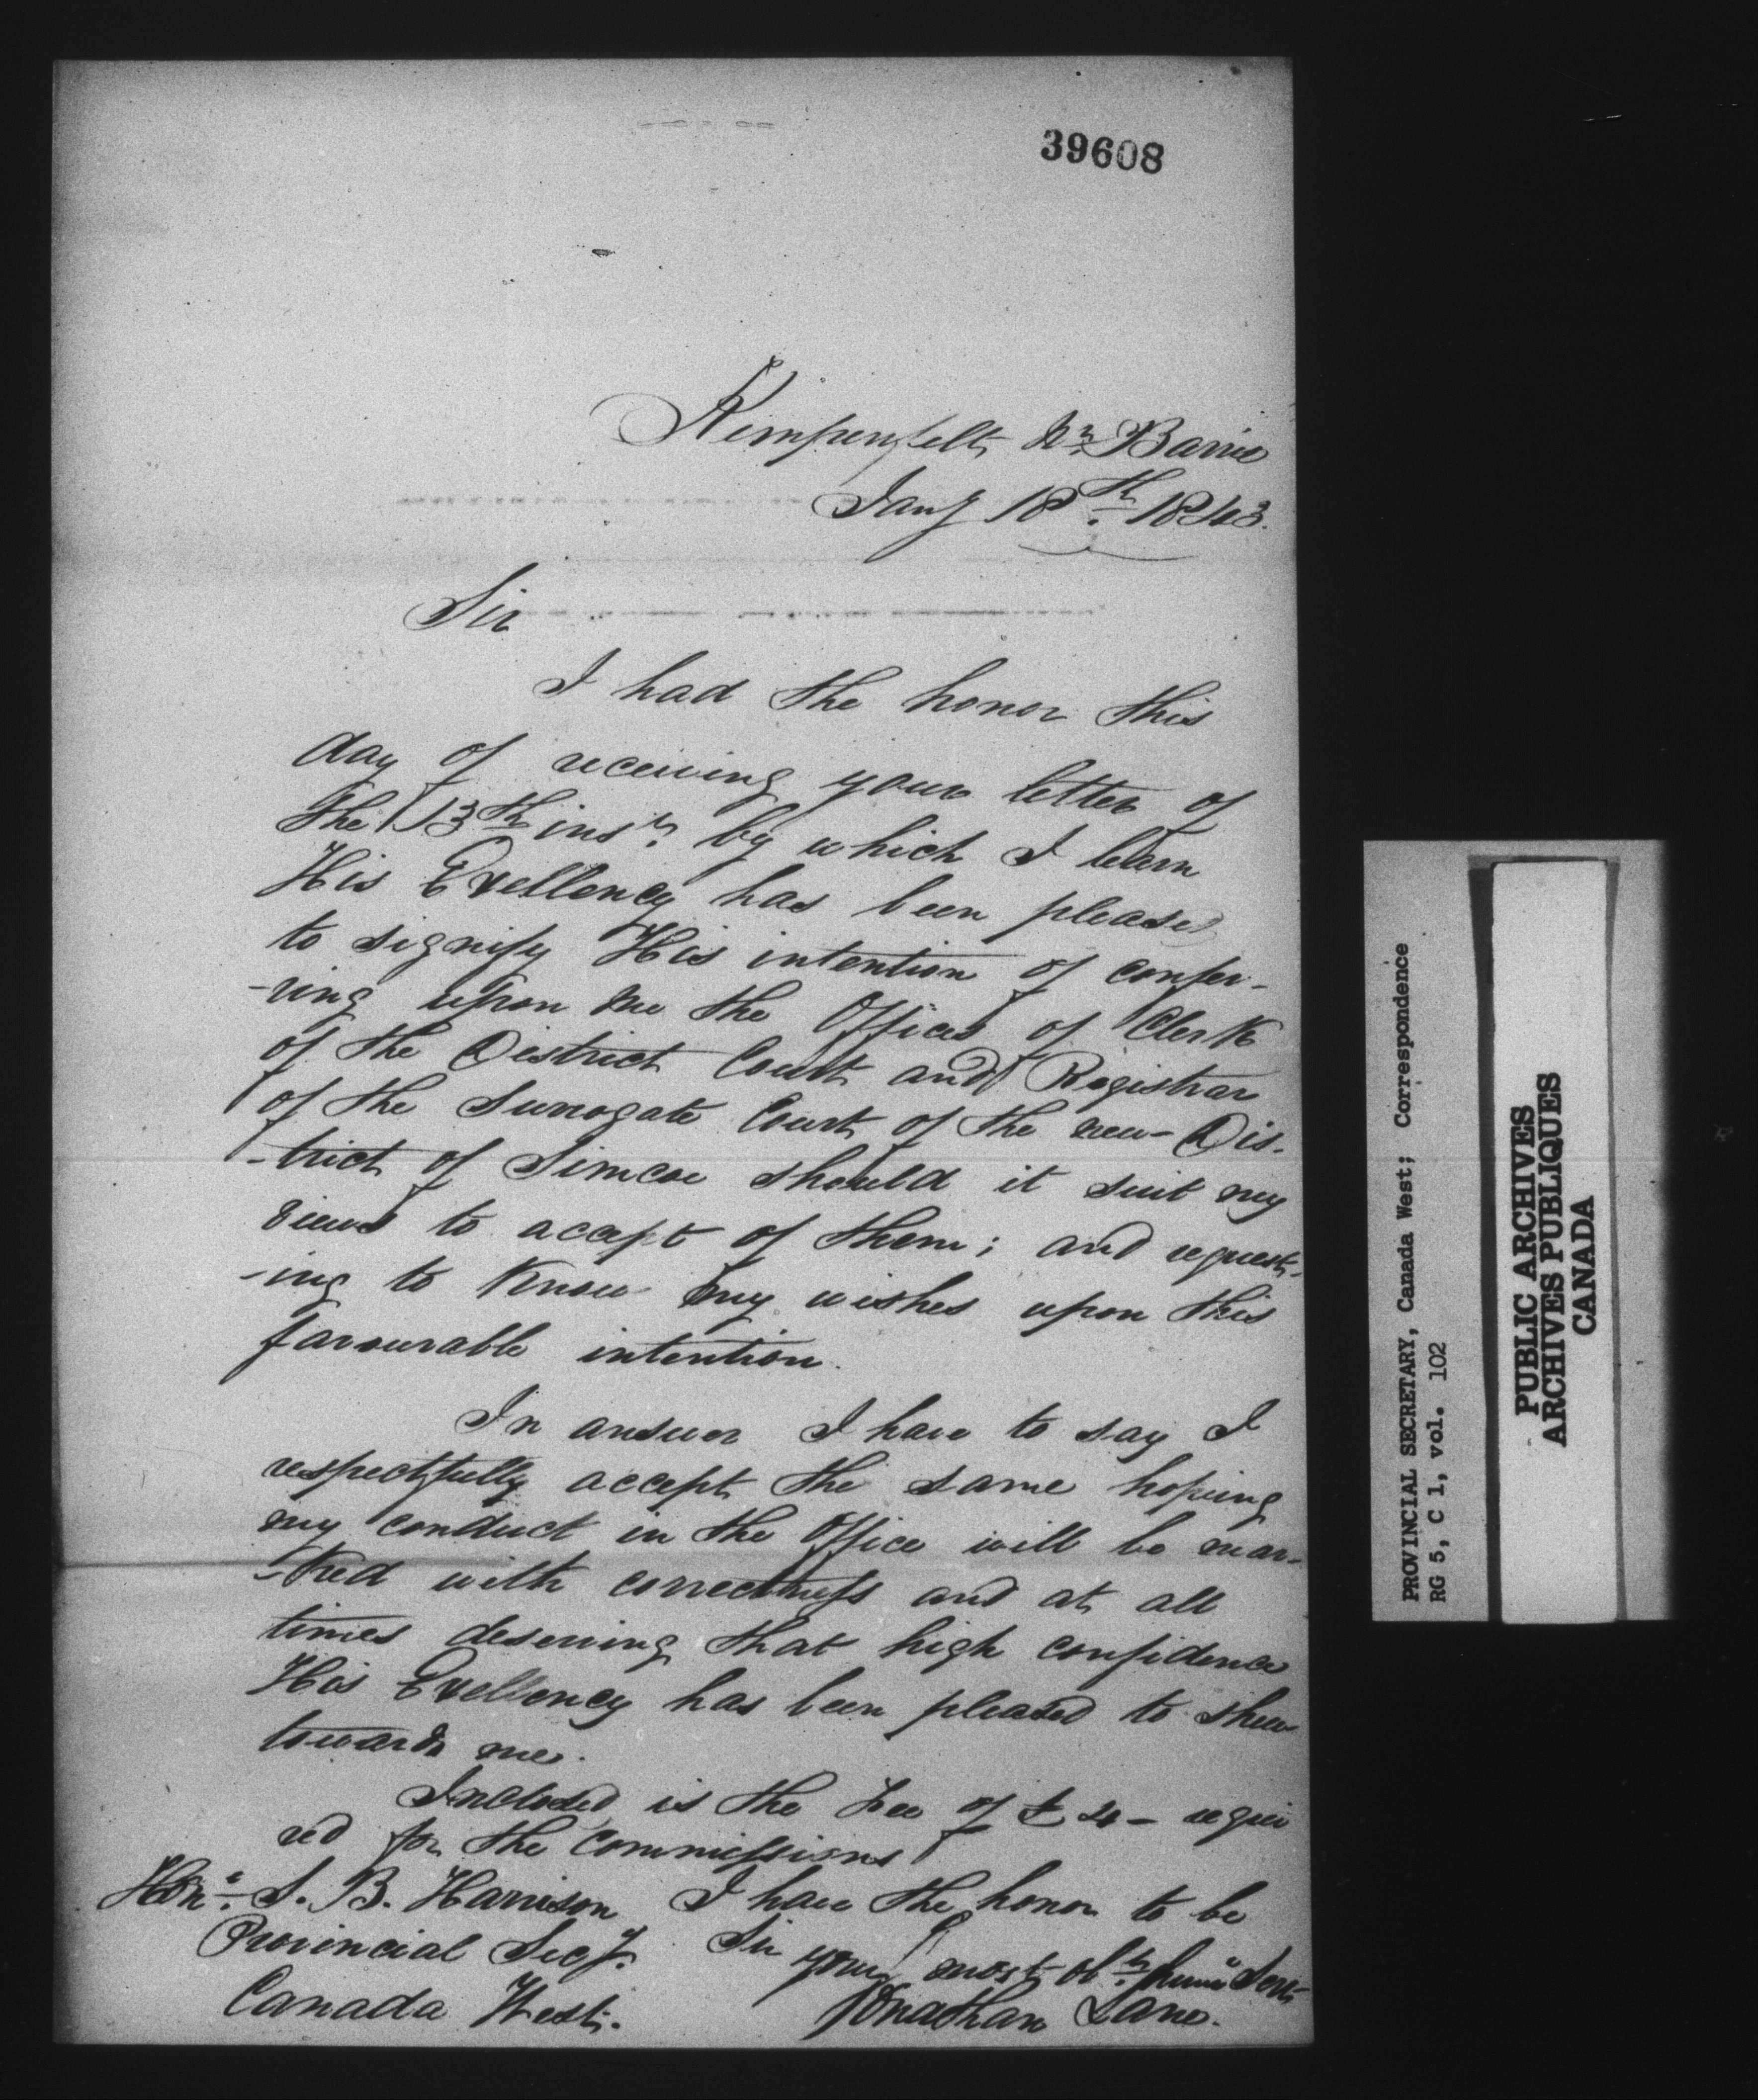 39608
Kempenfelt Nr. Barrie
Jany 18th. 1843.
Sir
I had the honor this
day of receiving your letter of
the 13th inst. by which I learn
His Excellency has been pleased
to signify His intention of confer-
-ring upon me the Offices of Clerk
of the District Court and Registrar
of the Surrogate Court of the new Dis-
-trict of Simcoe should it suit my
views to accept of them; and request-
-ing to know my wishes upon this
favourable intention.
In answer I have to say I
respectfully accept the same hoping
my conduct in the Office will be mar-
-ked with correctness and at all
times deserving that high confidence
His Excellency has been pleased to shew
towards me.
Inclosed is the Fee of £ 4 – requi
red for the Commissions
I have the honor to be
Sir your most obt. humle Servt
Jonathan Lane.
Hone. S. B. Harrison
Provincial Secy.
Canada West.
PROVINCIAL SECRETARY, Canada West; Correspondence
RG 5, C 1, vol. 102
PUBLIC ARCHIVES
ARCHIVES PUBLIQUES
CANADA